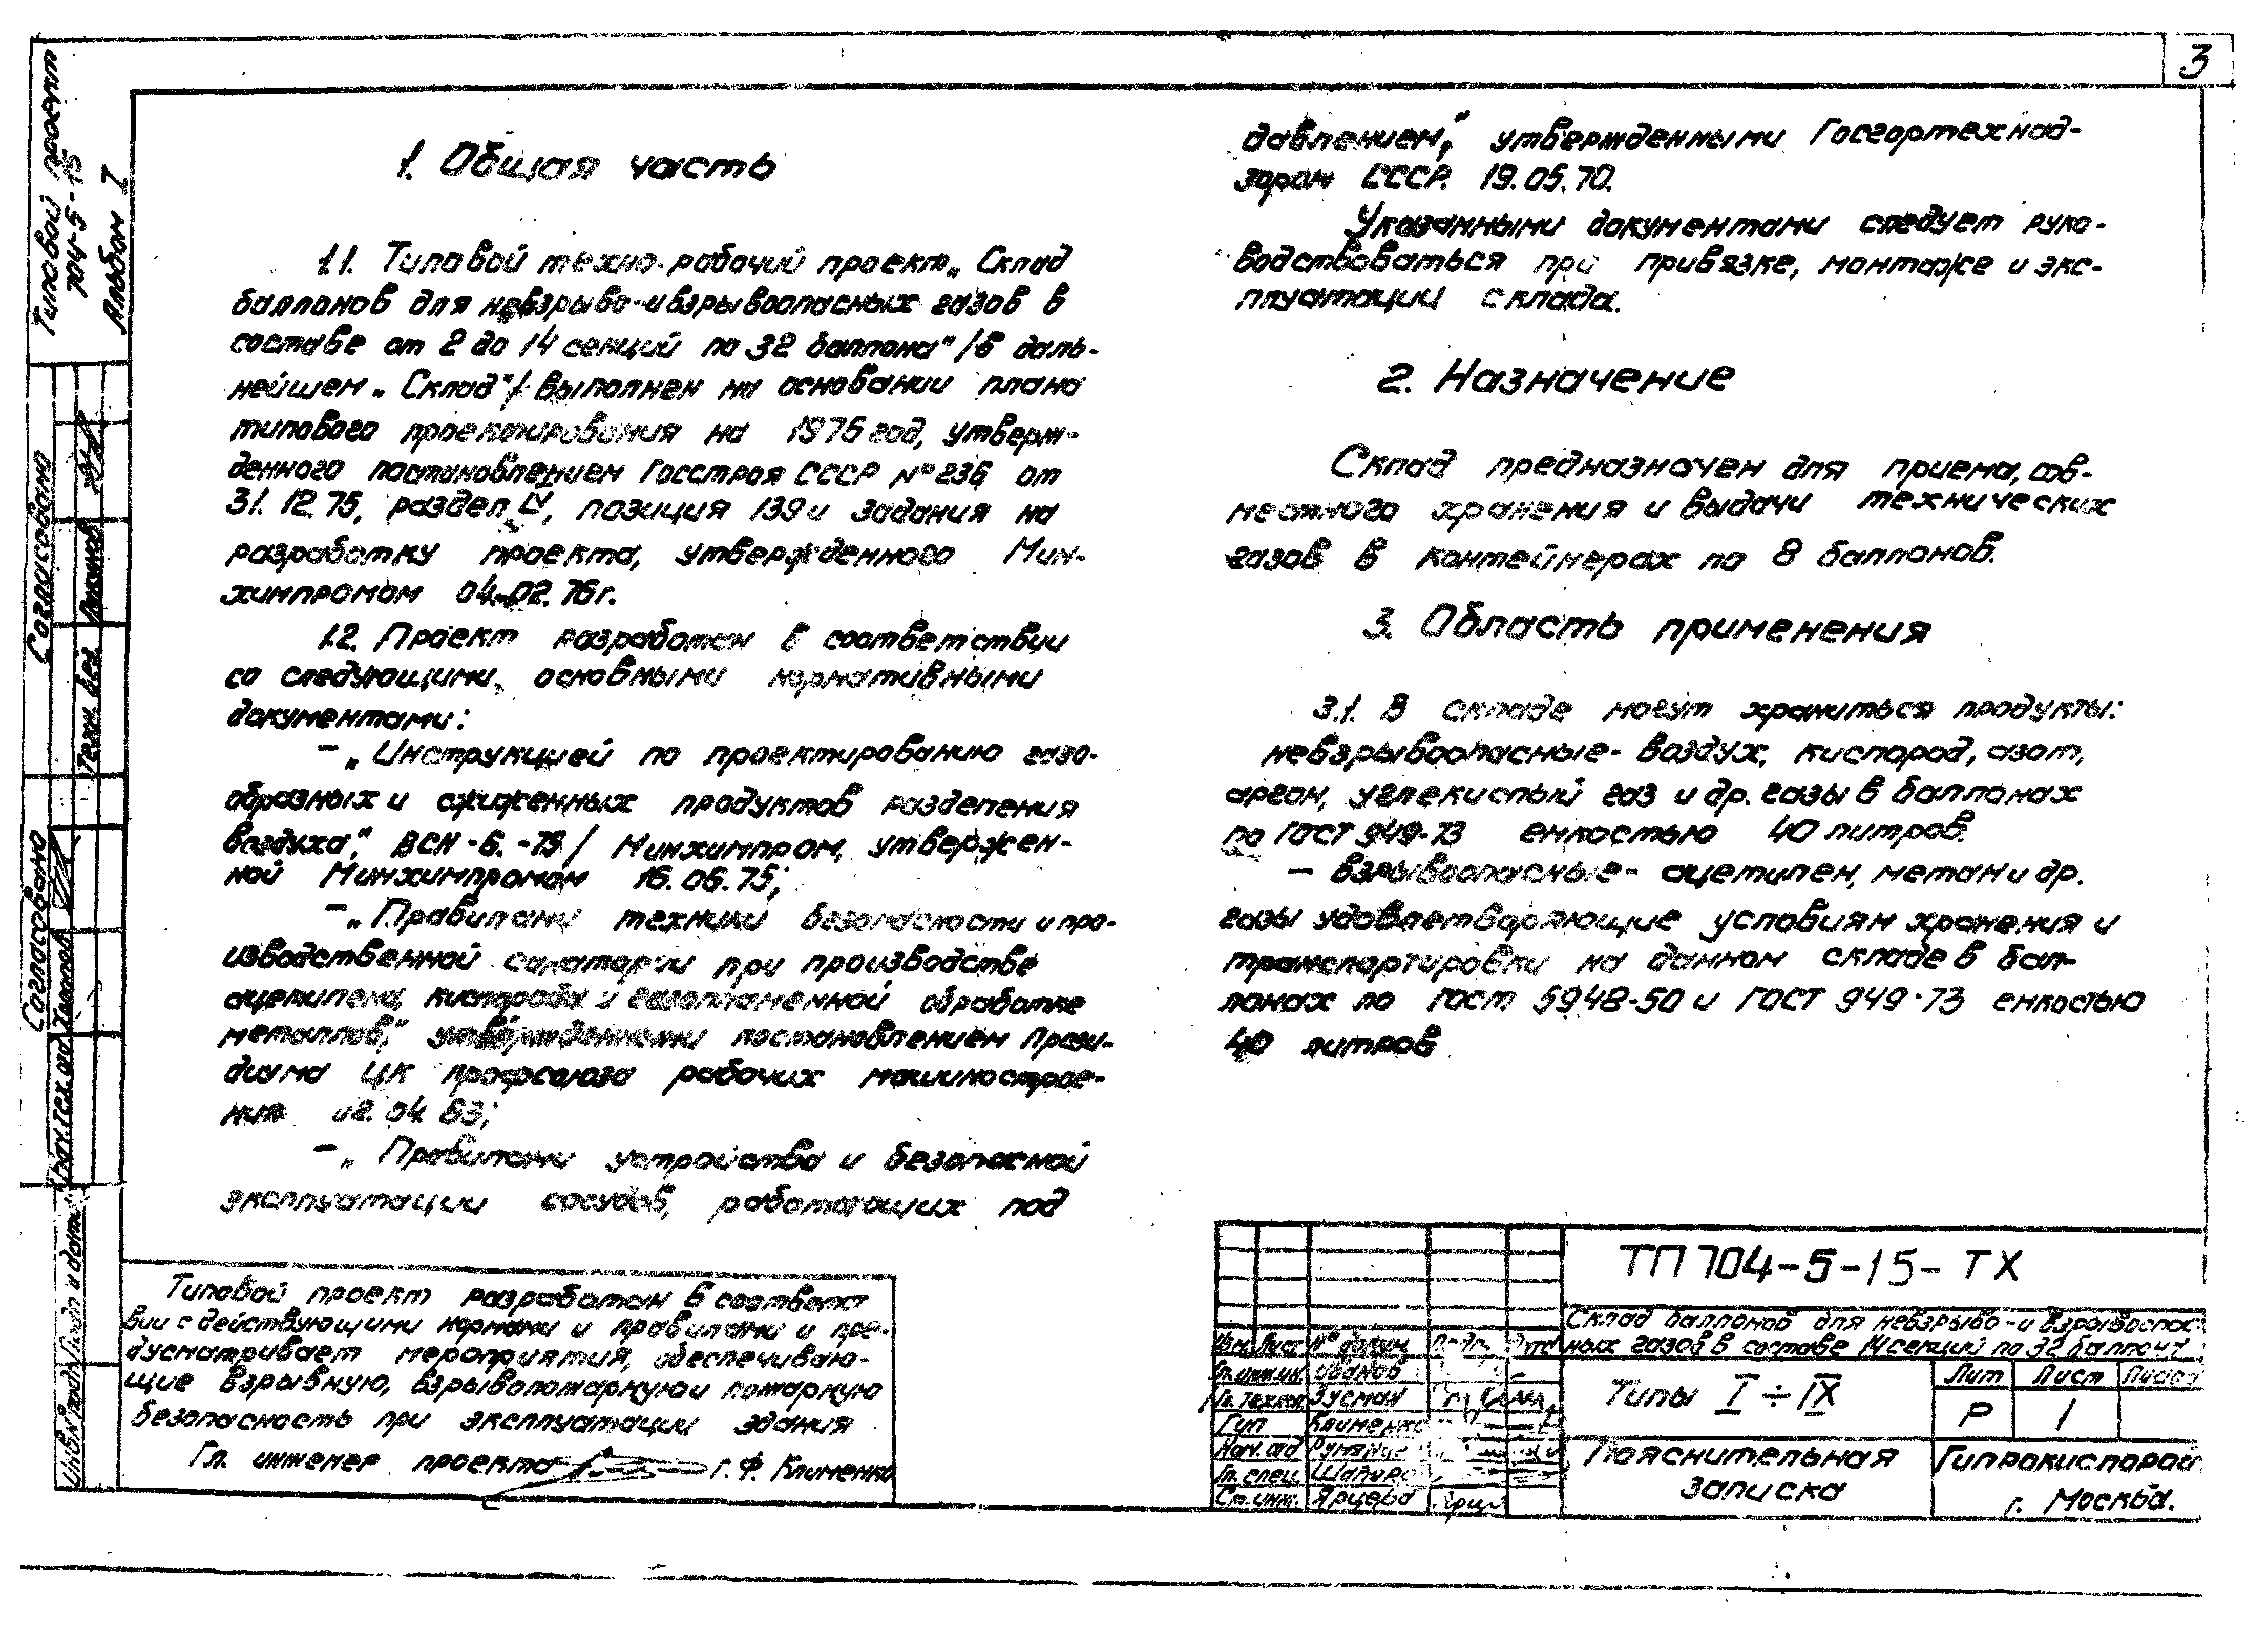 3
Типовой проект
704-5-15
Альбом I
Согласовано
Согласовано
1. Общая часть
1.1. Типовой техно-рабочий проект „Склад
баллонов для невзрыво- и взрывоопасных газов в
составе от 2 до 14 секций по 32 баллона" /в даль-
нейшем „Склад"/ выполнен на основании плана
типового проектирования на 1976 год, утверж-
денного постановлением Госстроя СССР № 236 от
31.12.75, раздел IV, позиция 139 и задания на
разработку проекта, утвержденного Мин-
химпромом 04.02.76г.
1.2. Проект разработан в соответствии
со следующими, основными нормативными
документами:
– „Инструкцией по проектированию газо-
образных и сжиженных продуктов разделения
воздуха", ВСН-6.-75/ Минхимпром, утвержен-
ной Минхимпромом 16.06.75;
– „Правилами техники безопасности и про-
изводственной санитарии при производстве
ацетилена, кислорода и газопламенной обработке
металлов", утвержденными постановлением Прези-
диума ЦК профсоюза рабочих машинострое-
ния 02.04.63;
– „Правилами устройства и безопасной
эксплуатации сосудов, работающих под
давлением", утвержденными Госгортехнад-
зором СССР. 19.05.70.
Указанными документами следует руко-
водствоваться при привязке, монтаже и экс-
плуатации склада.
2. Назначение
Склад предназначен для приема, сов-
местного хранения и выдачи технических
газов в контейнерах по 8 баллонов.
3. Область применения
3.1. В складе могут храниться продукты:
невзрывоопасные- воздух, кислород, азот,
аргон, углекислый газ и др. газы в баллонах
по ГОСТ 949-73 емкостью 40 литров.
– взрывоопасные- ацетилен, метан и др.
газы удовлетворяющие условиям хранения и
транспортировки на данном складе в бал-
лонах по ГОСТ 5948-50 и ГОСТ 949-73 емкостью
40 литров
Типовой проект разработан в соответст
вии с действующими нормами и правилами и пре-
дусматривает мероприятия, обеспечиваю-
щие взрывную, взрывопожарную и пожарную
безопасность при эксплуатации здания
Гл. инженер проекта Г.Ф. Клименко
ТП 704-5-15-ТХ
Склад баллонов для невзрыво- и взрывоопас-
ных газов в составе 14 секций по 32 баллона
Изм. Лист № докум. Подп. Дата
Гл. инж.ин. Иванов
Гл. технол. Гусман
Гип Клименко
Нач. отд
Гл. спец. Шапиро
Ст. инж. Ярцева
Типы I ÷ IX
Лит Лист Листов
Р 1
Пояснительная
записка
Гипрокислород
г. Москва.
Инв.№ подл. Подп и дата